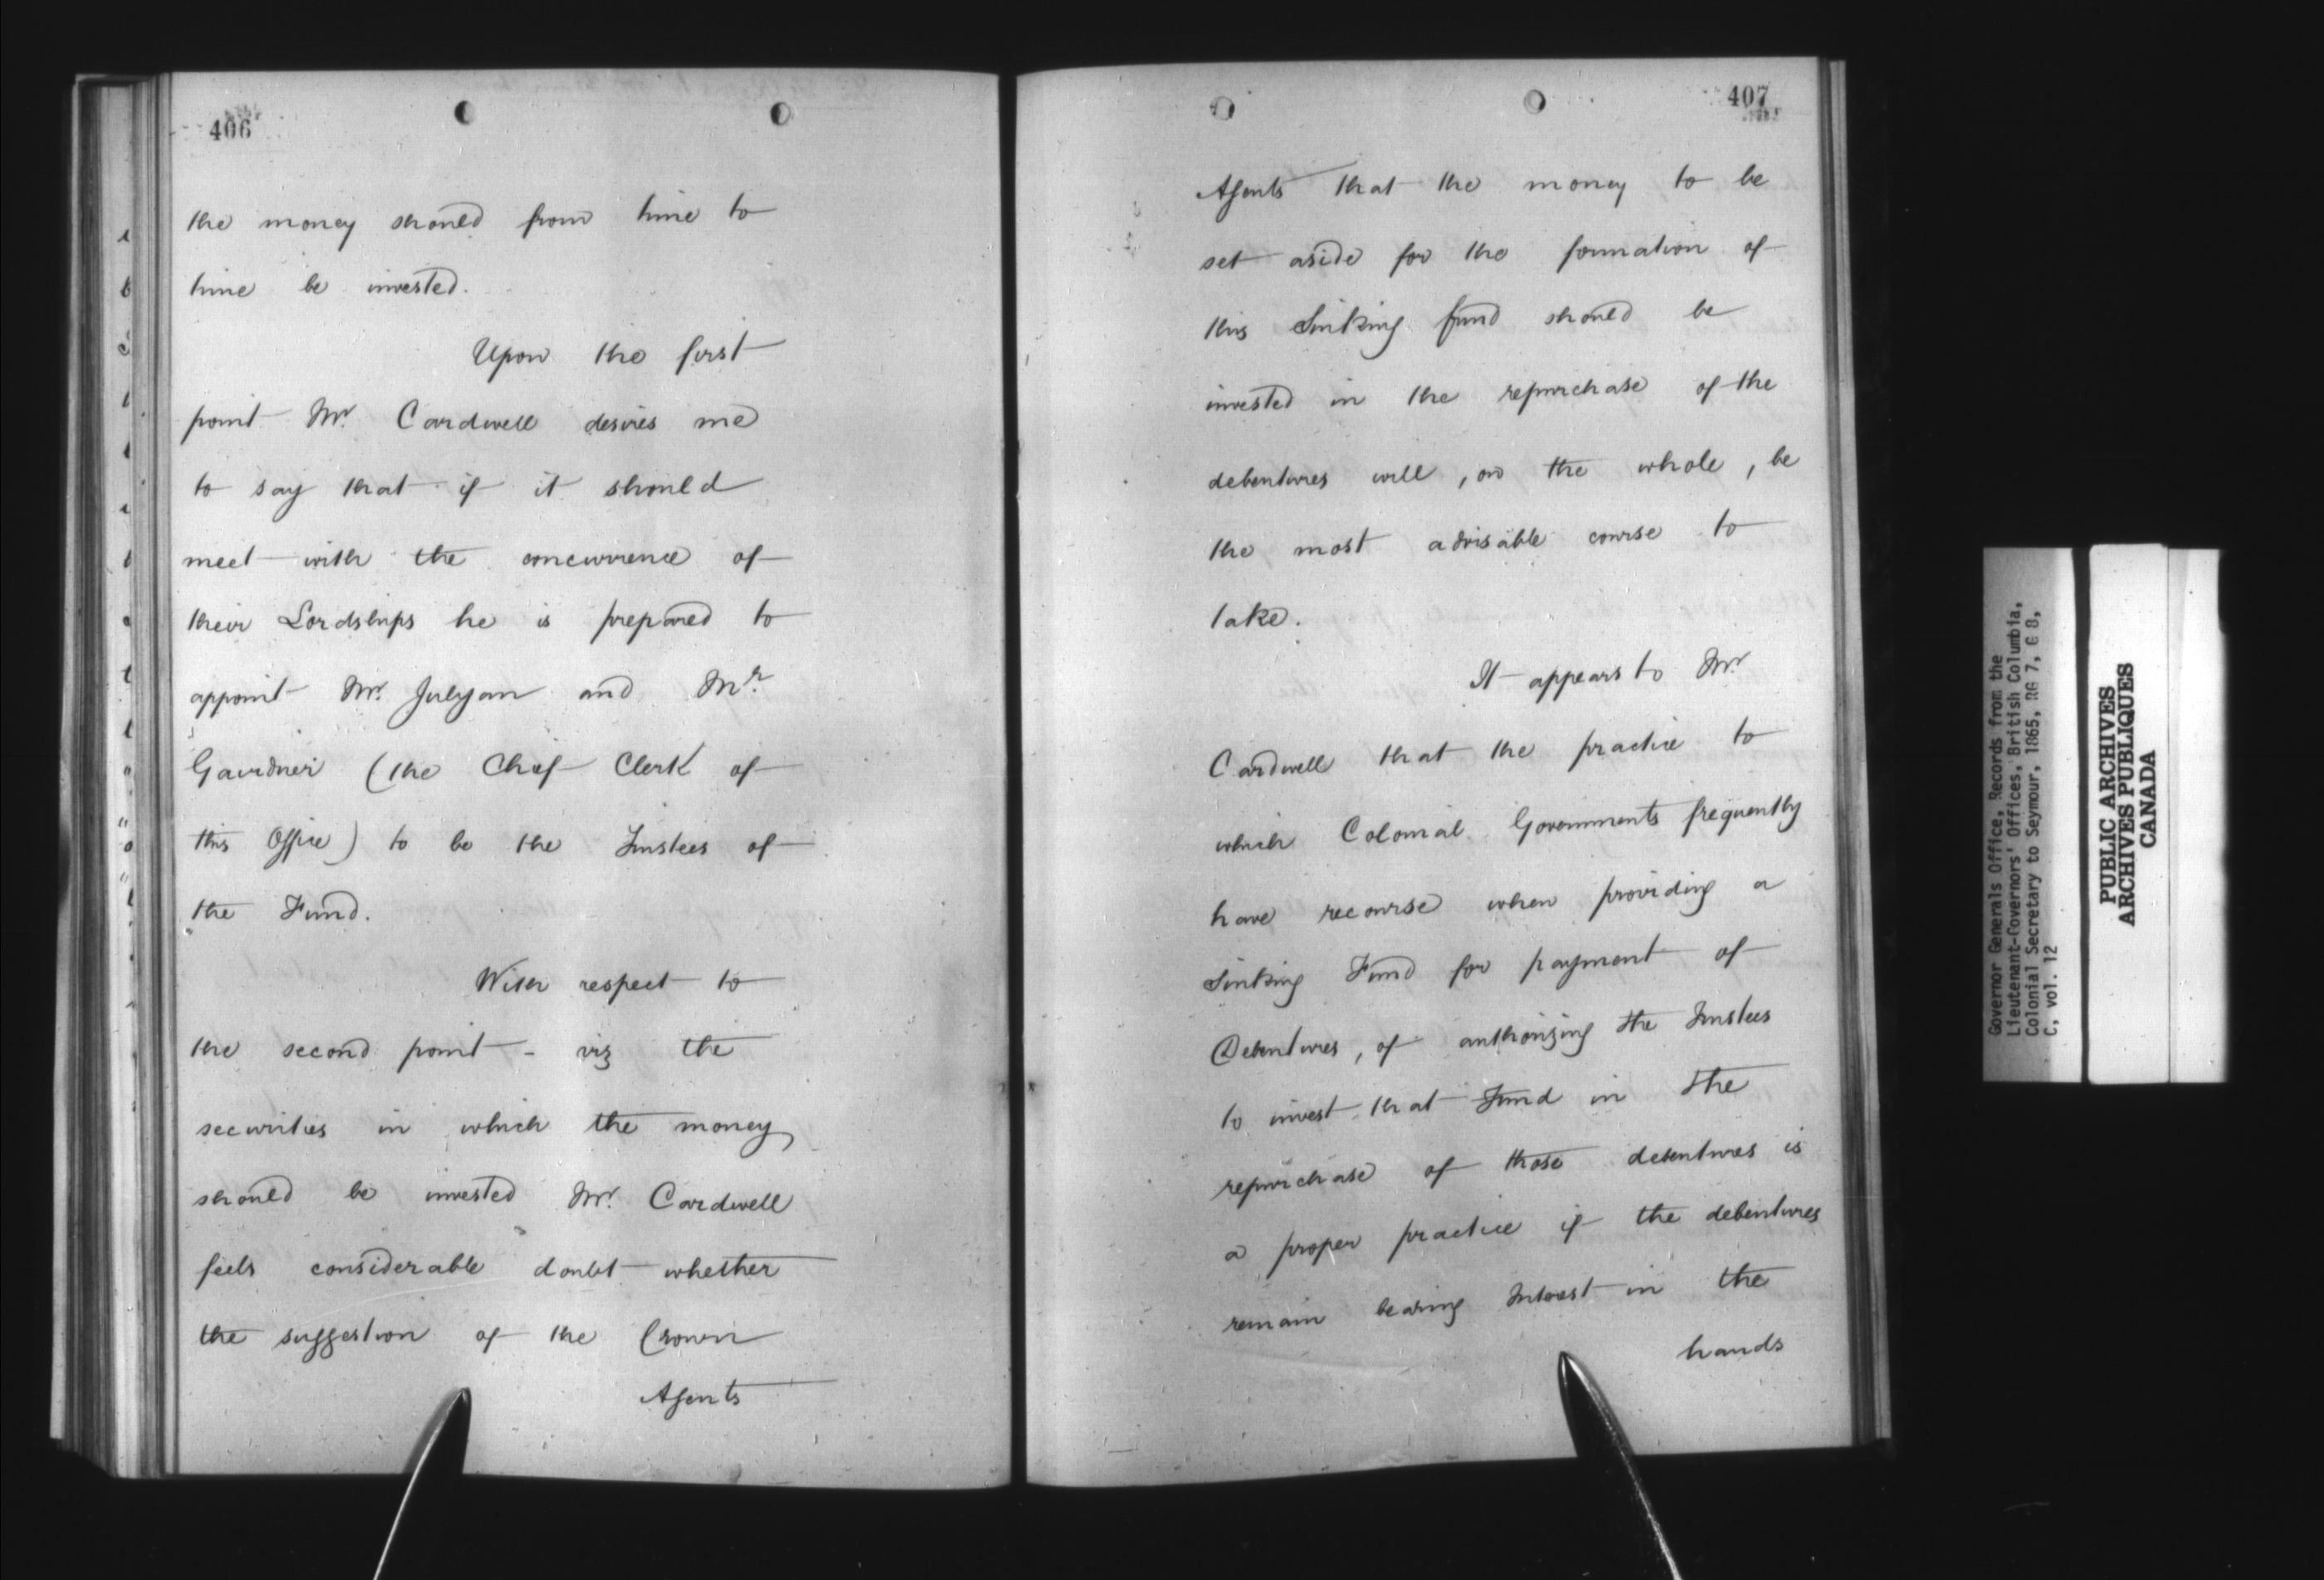 406
the money should from time to
time be invested.
Upon the first
point Mr. Cardwell desires me
to say that if it should
meet with the concurrence of
their Lordships he is prepared to
appoint Mr. Julyan and Mr.
Gairdner (the Chief Clerk of
this Office) to be the Trustees of
the Fund.
With respect to
the second point - viz the
securities in which the money
should be invested Mr. Cardwell
feels considerable doubt whether
the suggestion of the Crown
Agents
407
Agents that the money to be
set aside for the formation of
this Sinking fund should be
invested in the repurchase of the
debentures will, on the whole, be
the most advisable course to
take.
It appears to Mr
Cardwell that the practice to
which Colonial Governments frequently
have recourse when providing a
Sinking Fund for payment of
Debentures, of authorizing the Trustees
to invest that Fund in the
repurchase of those debentures is
a proper practice if the debentures
remain bearing Interest in the
hands
Governor Generals Office, Records from the
Lieutenant-Governors' Offices, British Columbia,
Colonial Secretary to Seymour, 1865, RG 7, G 8,
C, vol. 12
PUBLIC ARCHIVES
ARCHIVES PUBLIQUES
CANADA